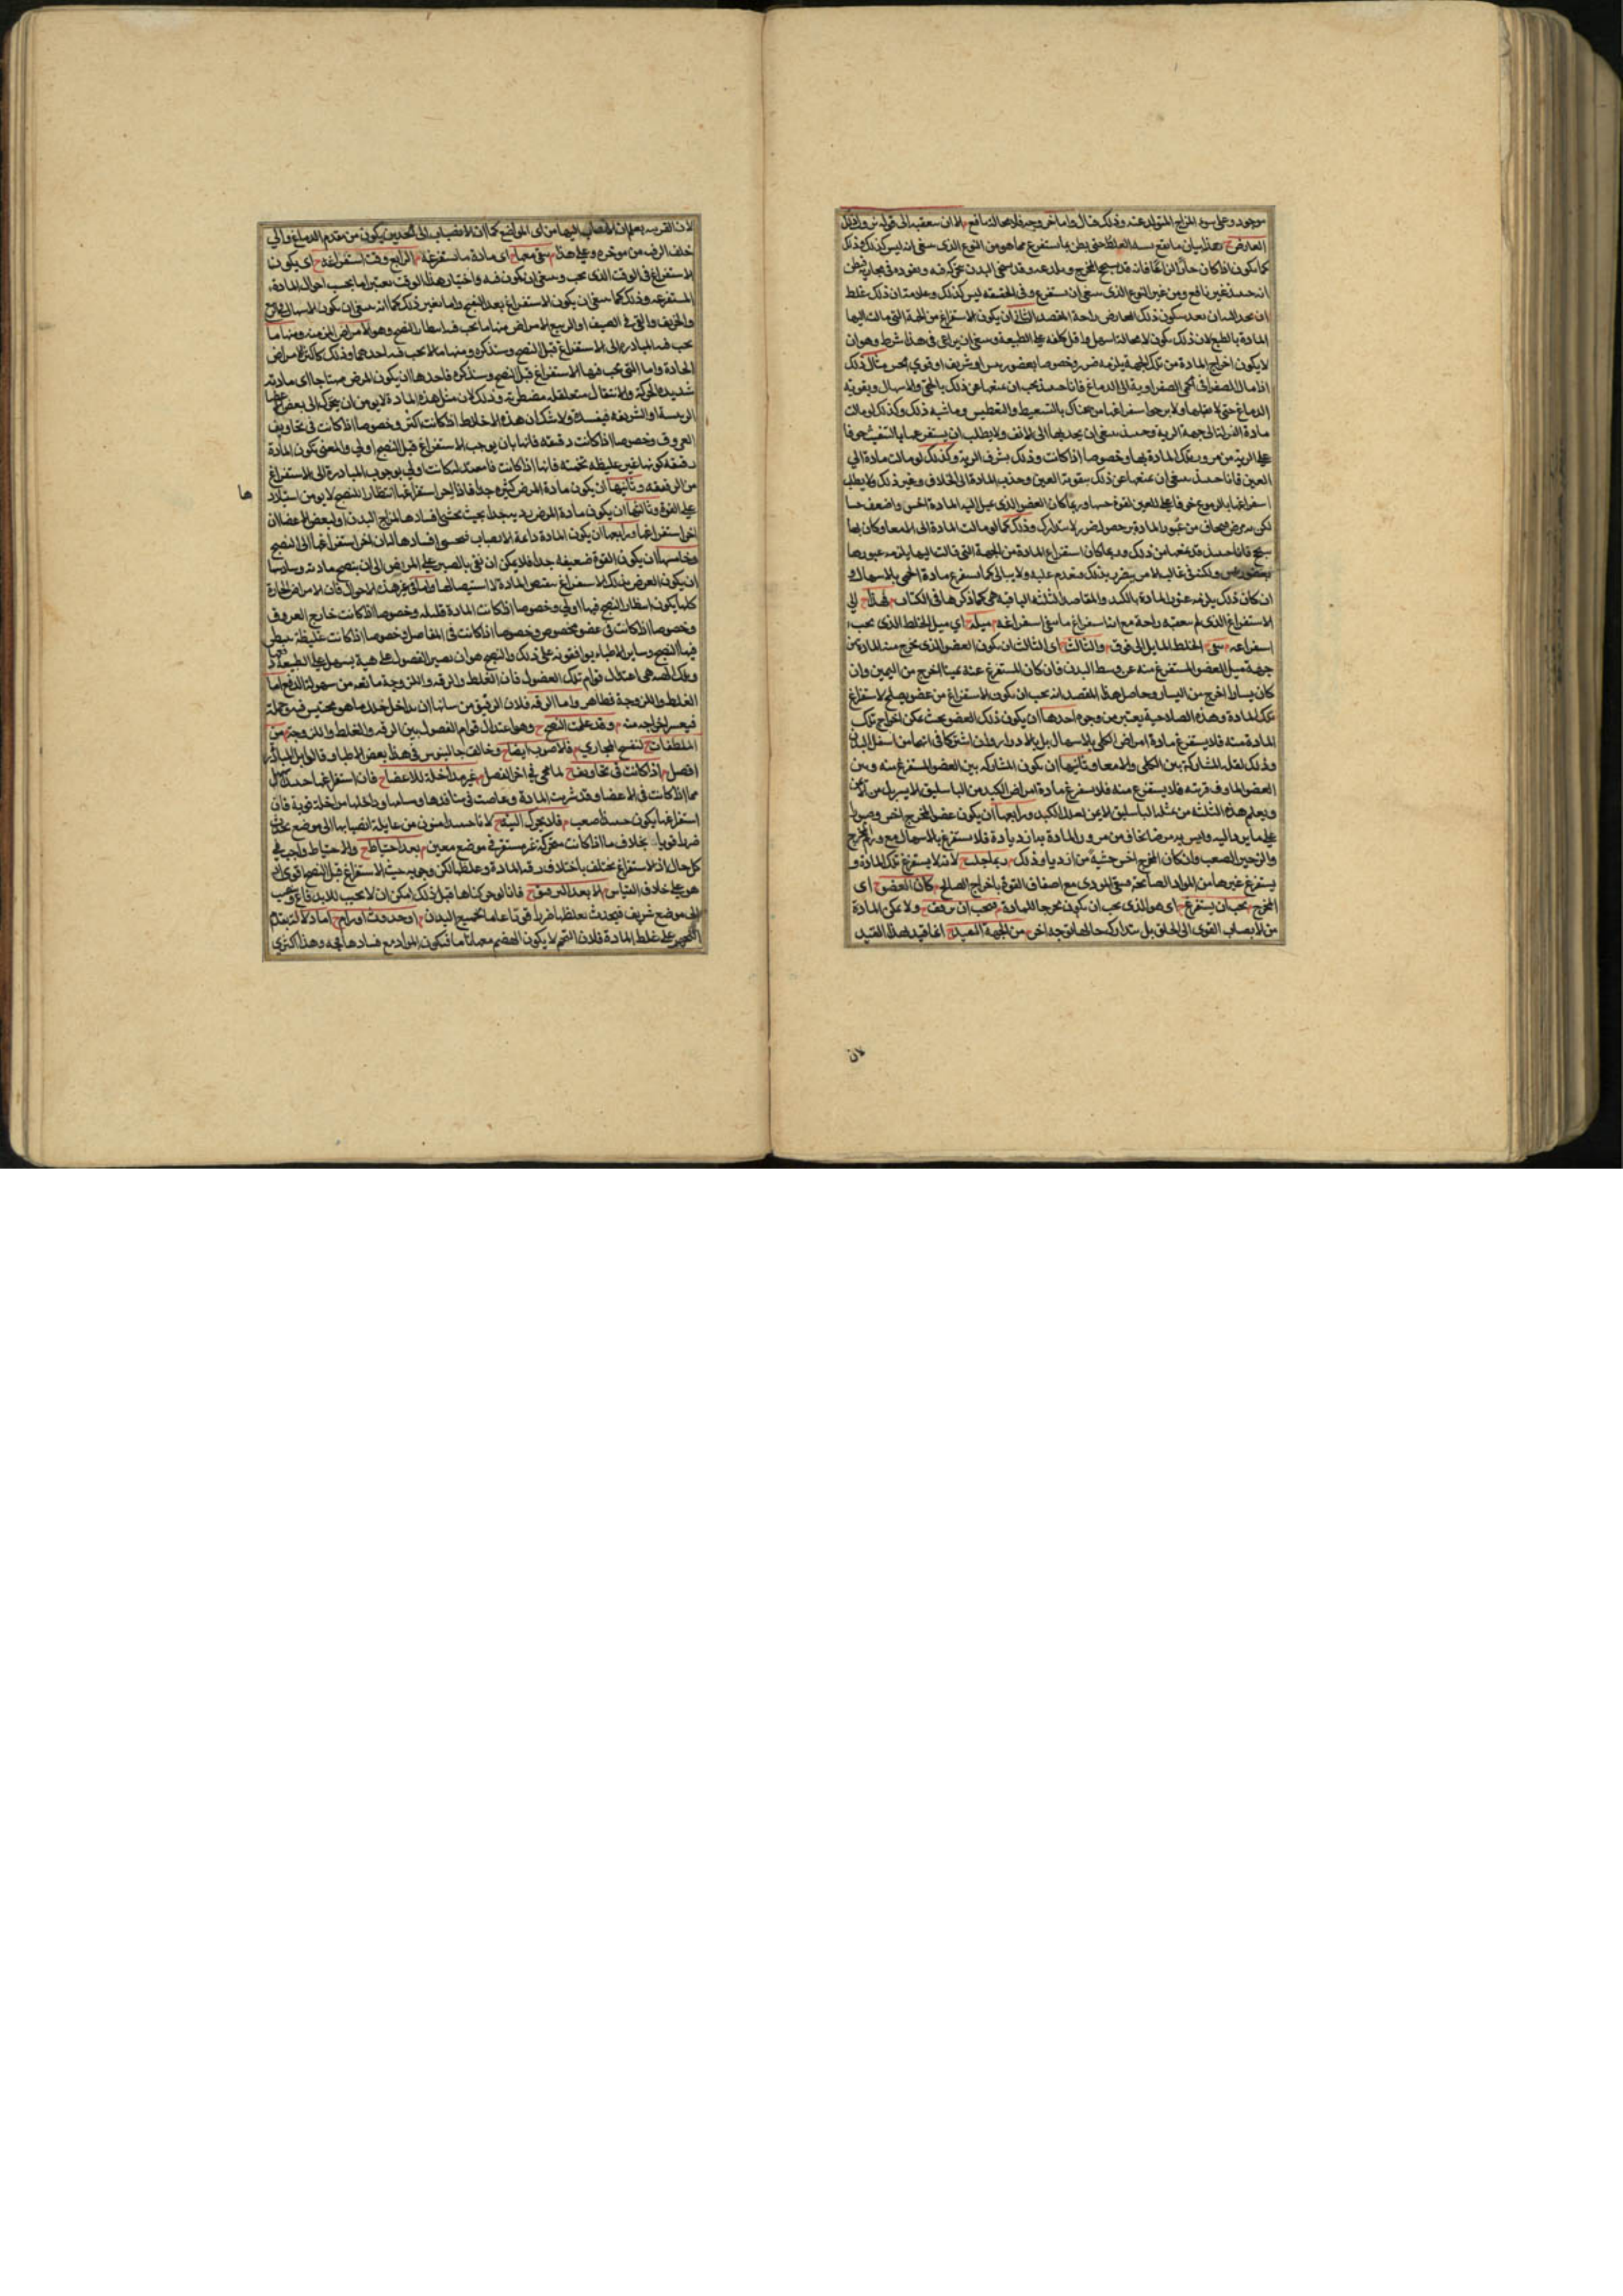 موجود وعلى سوء المزاج المتولد عنه وذلك قال واما اخر وجع فلا محالة نافع الا ان يعقبه
العارض هذا بيان ما يقع بسببه الغلط حتى يظن بما يستفرغ مما هو من النوع الذى ينبغى انه ليس كذلك وذلك
كما يكون اذا كان حادا لذاعا فانه قد يسحج المخرج
انه حينئذ غير نافع ومن غير النوع الذى ينبغى ان يستفرغ وفى الحقيقة ليس كذلك وعلامة ان ذلك غلط
ان يكون ذلك العارض راحة المقصد الثانى ان يكون الاستفراغ من الجهة التى مالت اليها
المادة بالطبع لان ذلك يكون لا محالة اسهل واقل كلفة على الطبيعة وينبغى ان يراعى فى هذا شرط وهو ان
لا يكون اخراج المادة من تلك الجهة يلزمه ضرر وخصوصا بعضو رئيس او شريف او قوى الحس مثال ذلك
اذا مال الصفراء فى الحمى الصفراوية الى الدماغ فانا حينئذ يجب ان نمنعها عن ذلك بالحقن والاسهال وبتقوية
الدماغ حتى لا يقبلها ولا نروم استفراغها من هناك بالتسعيط والتعطيس وما شبه ذلك وكذلك لو مالت
مادة النزلة الى جهة الرية وحينئذ ينبغى ان نجذبها الى الانف ولا نطلب ان نستفرغها بالنفث خوفا
على الرية من مرور تلك المادة بها وخصوصا اذا كانت وذلك بشرف الرية وكذلك لو مالت مادة الى
العين فانا حينئذ ينبغى ان نمنعها عن ذلك بتقوية العين وجذب المادة الى الخلاف وغير ذلك ولا نطلب
استفراغها بالدموع خوفا على العين لقوة حسها وربما كان العضو الذى يميل اليه المادة اخس واضعف حسا
لكن به مرض يخاف من عبور المادة به حصول ضرر لا يتدارك وذلك كما لو مالت المادة الى الامعا وكان بها
سحج فانا حينئذ قد نمنعها من ذلك وربما كان استفراغ المادة من الجهة التى مالت اليها يلزمه عبورها
بعضو رئيس ولكنه فى غالب الامر لا يتضرر بذلك فنقدم عليه ولا نبالى كما نستفرغ مادة الحمى بالاسهال و
ان كان ذلك يلزمه عبور المادة بالكبد والمقاصد الثلثة الباقية هى كما ذكرها فى الكتاب
الاستفراغ الذى لم يعقبه راحة مع انه استفراغ ما ينبغى استفراغه ميله اى ميل الخلط الذى يجب
استفراغه الخلط المايل الى فوق والثالث اى الثالث ان يكون العضو الذى يخرج منه المادة من
جهة ميل العضو المستفرغ منه عن وسط البدن فان كان المستفرغ عنه يمينا اخرج من اليمين وان
كان يسارا اخرج من اليسار وحاصل هذا المقصد انه يجب ان يكون الاستفراغ من عضو يصلح لاستفراغ
تلك المادة وهذه الصلاحية يعتبر من وجوه احدها ان يكون ذلك العضو بحيث يمكن اخراج تلك
المادة منه فلا يستفرغ مادة امراض الكلى بالاسهال بل بالادرار وان اشتركا فى انهما من اسفل البدن
وذلك لقلة المشاركة بين الكلى والامعا وثانيها ان يكون المشاركة بين العضو المستفرغ منه وبين
العضو الماوف قريبة فلا يستفرغ منه فلا يستفرغ مادة امراض الكبد من الباسليق الايسر بل من الايمن
ورابعها ان يكون عضو المخرج اخس وصبورا
على ما يرد اليه وليس به مرض يخاف من مرور المادة به ازدياده فلا يستفرغ بالاسهال مع ورم المخرج
والزحير الصعب وان كان المخرج اخس خشية من ازدياد ذلك لانه لا يستفرغ تلك المادة و
يستفرغ غيرها من المواد الصالحة فيبقى الموذى مع اضعاف القوة باخراج الصالح كان العضو اى
المخرج يجب ان يستفرغ اى هو الذى يجب ان يكون مخرجا للمادة فيجب ان يوقف ولا تمكن المادة
من الانصباب القوى الى الحلق بل من الجهة البعيدة انما قيد بهذا القيد
لان
لان القرب يعلم ان الانصباب اليها من اى المواضع كما ان الانصباب الى الخدين يكون من مقدم الدماغ والى
خلف الرقبة من موخره وعلى هذا اى مادة ما يستفرغه الرابع وقت استفراغه اى يكون
الاستفراغ فى الوقت الذى يجب وينبغى ان يكون فيه واختيار هذا الوقت يعتبر اما بحسب احوال المادة
المستفرغة وذلك كما ينبغى ان يكون الاستفراغ بعد النضج واما بغير ذلك كما انه ينبغى ان يكون الاسهال فى الربيع
والخريف والقى فى الصيف او الربيع الامراض منها ما يجب فيه انتظار النضج وهو الامراض المزمنة ومنها ما
يجب فيه المبادرة الى الاستفراغ قبل النضج وسنذكره ومنها ما لا يجب فيه احدهما وذلك كاكثر الامراض
الحادة واما التى يجب فيها الاستفراغ قبل النضج وسنذكره فاحدها ان يكون المرض مهتاجا اى مادته
شديدة الحركة والانتقال متقلقلة مضطربة وذلك لان مثل هذه المادة لا يومن ان يتحرك الى بعض الاعضا
الرئيسة او الشريفة فيفسده ولا شك ان هذه الاخلاط اذا كانت اكثر وخصوصا اذا كانت فى تجاويف
العروق وخصوصا اذا كانت رقيقة فانها بان يوجب الاستفراغ قبل النضج اولى والمعنى بكون المادة
رقيقة كونها غير غليظة ثخينة فانها اذا كانت فاسدة كانت اولى بوجوب المبادرة الى الاستفراغ
من الرقيقة وثانيها ان يكون مادة المرض كثيرة جدا فاذا اخر استفراغها انتظارا للنضج لا يومن استيلاؤ
ها
على القوة وثالثها ان يكون مادة المرض رديه جدا بحيث يخشى افسادها لمزاج البدن او لبعض الاعضا ان
اخر استفراغها ورابعها ان يكون المادة دائمة الانصباب فيخشى افسادها البدن ان اخر استفراغها الى النضج
وخامسها ان يكون القوة ضعيفة جدا فلا يمكن ان تفى بالصبر على المرض الى ان ينضج مادته وسادسها
ان يكون الغرض بذلك الاستفراغ تنقيص المادة لا استيصالها واما فى غير هذه الاحوال فان الامراض الحادة
كلها يكون انتظار النضج فيها اولى وخصوصا اذا كانت المادة قليلة وخصوصا اذا كانت خارج العروق
وخصوصا اذا كانت فى عضو مخصوص وخصوصا اذا كانت فى المفاصل وخصوصا اذا كانت غليظة
فيها النضج وساير الاطباء يوافقونه على ذلك والنضج هو ان تصير الفضول على هيئة يسهل على الطبيعة دفعها
وتلك الهيئة هى اعتدال قوام تلك الفضول فان الغلظ والرقة واللزوجة مانعة من سهولة الدفع اما
الغلظ واللزوجة فظاهر واما الرقة فلان الرقيق من شانه ان يداخل خلل ما هو محتبس فيه
فيعسر اخراجه منه وقد علمت النضج وهو اعتدال قوام الفضول بين الرقة والغلظ واللزوجة من
الملطفات لتفتح المجارى فالاصوب ايضا وخالف جالينوس فى هذا بعض الاطبا وقالوا بل المبادرة
افضل اذا كانت فى تجاويف لما هى فى اخر الفصل غير مداخلة للاعضا فان استفراغها حينئذ اسهل
مما اذا كانت فى الاعضا وقد شربت المادة وغاصت فى منافذها ومسامها وداخلها مداخلة قوية فان
استفراغها يكون حينئذ صعبا فلا يحرك البتة لانا حينئذ امنون من غايلة انصبابها الى موضع يحدث
ضررا قويا بخلاف ما اذا كانت متحركة غير مستقرة فى موضع معين بعد احتياط والاحتياط واجب فى
كل حال اذ الاستفراغ يختلف باختلاف رقة المادة وغلظها لكن وجوبه حيث الاستفراغ قبل النضج اقوى اذ
هو على خلاف القياس الا بعد الترقيق فانا لو حركناها قبل ذلك امكن ان لا يجيب للاندفاع
الى موضع شريف فيحدث بغلظها ضررا قويا عاما بجميع البدن او حدوث اورام اما دلالة تقدم
التخم على غلظ المادة فلان التخم لا يكون الهضم معها تاما فيكون المواد مع فسادها فجة وهذا اكثرى